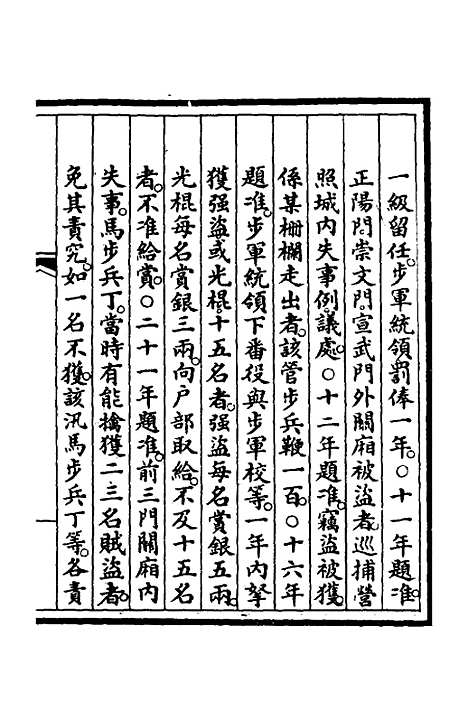 一級留任。步軍統領罰俸一年。○十一年題准。
正陽門崇文門。宣武門外關廂被盜者。巡捕營
照城內失事例議處。○十二年題准。竊盜被獲。
係某柵欄走出者。該管步兵鞭一百。○十六年
題准。步軍統領下番役與步軍校等。一年內拏
獲强盜或光棍。十五名者。强盜每名賞銀五兩。
光棍每名賞銀三兩。向戶部取給。不及十五名
者。不准給賞。○二十一年題准。前三門關廂內
失事。馬步兵丁。當時有能擒獲二三名賊盜者。
免其責究。如一名不獲。該汛馬步兵丁等。各責